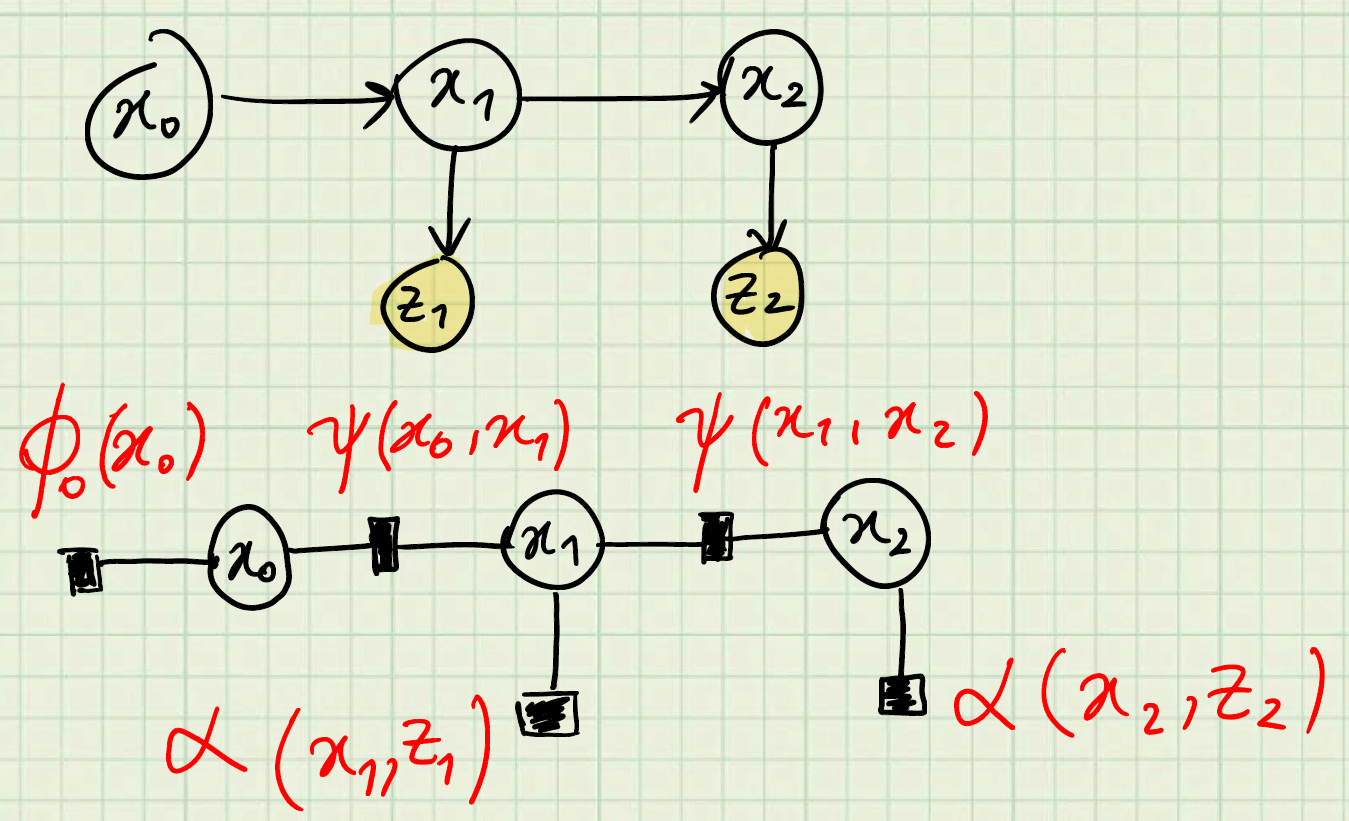 x₀ x₁ x₂
z₁ z₂
ϕ₀(x₀) ψ(x₀,x₁) ψ(x₁,x₂)
x₀ x₁ x₂
α(x₁,z₁) α(x₂,z₂)